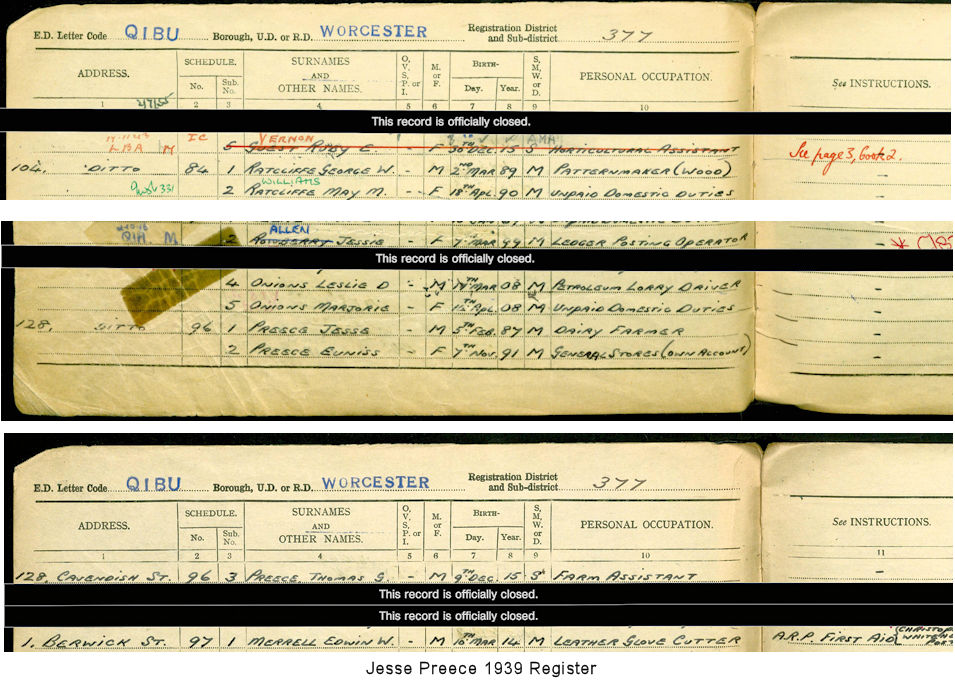 E.D. Letter Code QIBU Borough, U.D. or R.D. WORCESTER Registration District and Sub-district 377
ADDRESS. SCHEDULE. No. Sub. No. SURNAMES AND OTHER NAMES. O, V, S, P. or I. M. or F. BIRTH- Day. Year. S, M, W, or D. PERSONAL OCCUPATION. See INSTRUCTIONS.
1 2 3 4 5 6 7 8 9 10
This record is officially closed.
LBA M IC VERNON
5 GUEST RUBY E. - F 30TH DEC. 15 S HORTICULTURAL ASSISTANT See page 3, book 2.
104, DITTO 84 1 RATCLIFFE GEORGE W. - M 2ND MAR 89 M PATTERNMAKER (WOOD) -
WILLIAMS
2 RATCLIFFE MAY M. - F 18TH APL. 90 M UNPAID DOMESTIC DUTIES -
ALLEN
M 2 JESSIE - F 7TH MAR 99 M LEDGER POSTING OPERATOR -
This record is officially closed.
4 ONIONS LESLIE D - M 08 M PETROLEUM LORRY DRIVER -
5 ONIONS MARJORIE - F 15TH APL. 08 M UNPAID DOMESTIC DUTIES -
128, DITTO 96 1 PREECE JESSE - M 5TH FEB. 87 M DAIRY FARMER -
2 PREECE EUNISS - F 7TH NOV. 91 M GENERAL STORES (OWN ACCOUNT) -
E.D. Letter Code QIBU Borough, U.D. or R.D. WORCESTER Registration District and Sub-district 377
ADDRESS. SCHEDULE. No. Sub. No. SURNAMES AND OTHER NAMES. O, V, S, P. or I. M. or F. BIRTH- Day. Year. S, M, W, or D. PERSONAL OCCUPATION. See INSTRUCTIONS.
1 2 3 4 5 6 7 8 9 10 11
128, CAVENDISH ST. 96 3 PREECE THOMAS G. - M 9TH DEC. 15 S FARM ASSISTANT -
This record is officially closed.
This record is officially closed.
1. BERWICK ST. 97 1 MERRELL EDWIN W. - M 10TH MAR 14 M LEATHER GLOVE CUTTER A.R.P. FIRST AID
Jesse Preece 1939 Register